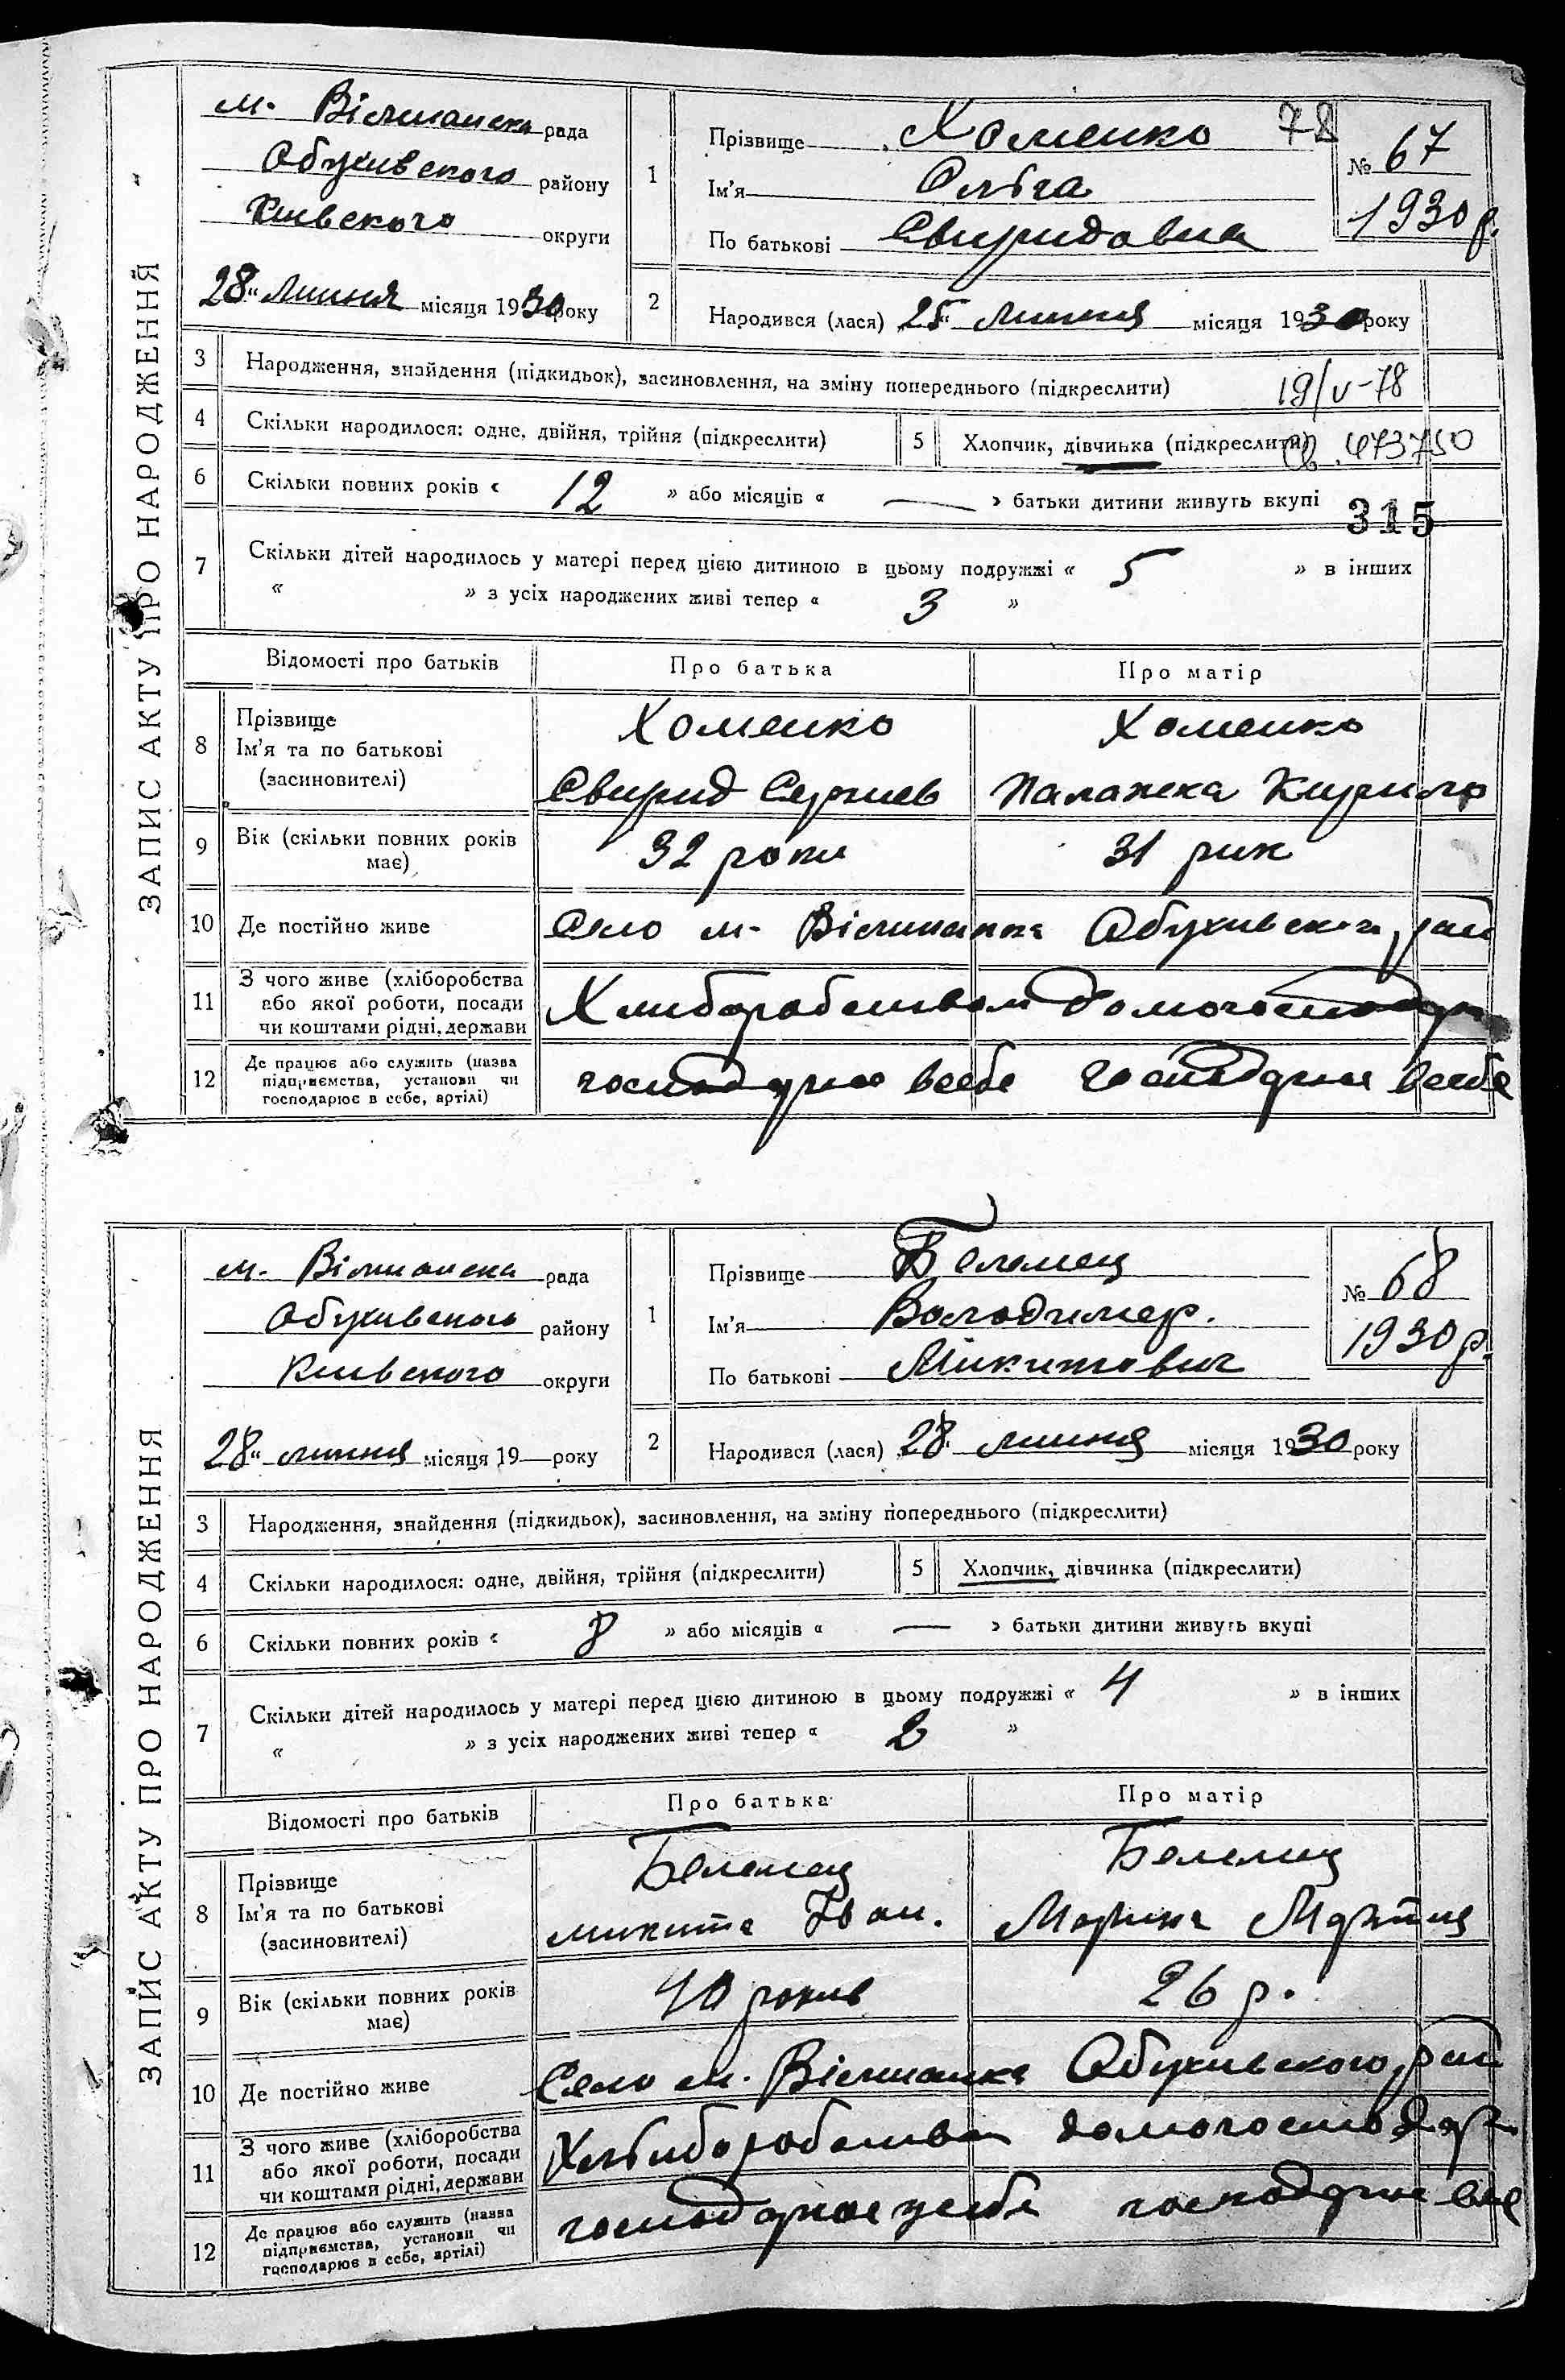 ЗАПИС АКТУ ПРО НАРОДЖЕННЯ
м. Вільшанська рада
Обухивского району
Київского округи
28 „ Липня місяця 1930 року
1 Прізвище Хоменко 78
Ім'я Ольга
По батькові Свиридовна
№ 67
1930 р.
2 Народився (лася) 25 „ липня місяця 1930 року
3 Народження, знайдення (підкидьок), засиновлення, на зміну попереднього (підкреслити) 19/V-78
4 Скільки народилося: одне, двійня, трійня (підкреслити) 5 Хлопчик, дівчинка (підкреслити) 473750
6 Скільки повних років « 12 » або місяців « — » батьки дитини живуть вкупі
315
7 Скільки дітей народилось у матері перед цією дитиною в цьому подружжі « 5 » в інших
« » з усіх народжених живі тепер « 3 »
Відомості про батьків Про батька Про матір
8 Прізвище Хоменко Хоменко
Ім'я та по батькові
(засиновителі) Свирид Сергиев Палажка Кирило
9 Вік (скільки повних років має) 32 роки 31 рик
10 Де постійно живе Село м. Вільшанка Обухивского рай
11 З чого живе (хліборобства
або якої роботи, посади
чи коштами рідні, держави Хлиборобством домогосподар
12 Де працює або служить (назва
підприємства, установи чи
господарює в себе, артілі) господарює всебе господарює всебе
ЗАПИС АКТУ ПРО НАРОДЖЕННЯ
м. Вільшанска рада
Обухивского району
Київского округи
28 „ липня місяця 19—року
1 Прізвище Белемец
Ім'я Володимер.
По батькові Микитович
№ 68
1930 р.
2 Народився (лася) 28 „ липня місяця 1930 року
3 Народження, знайдення (підкидьок), засиновлення, на зміну попереднього (підкреслити)
4 Скільки народилося: одне, двійня, трійня (підкреслити) 5 Хлопчик, дівчинка (підкреслити)
6 Скільки повних років « 8 » або місяців « — » батьки дитини живуть вкупі
7 Скільки дітей народилось у матері перед цією дитиною в цьому подружжі « 4 » в інших
« » з усіх народжених живі тепер « 2 »
Відомості про батьків Про батька Про матір
8 Прізвище Белемец Белемец
Ім'я та по батькові
(засиновителі) микита Iван. Марина Мартин
9 Вік (скільки повних років має) 40 рокив 26 р.
10 Де постійно живе Село м. Вільшанка Обухивского рай
11 З чого живе (хліборобства
або якої роботи, посади
чи коштами рідні, держави Хлиборобством домогосподар
12 Де працює або служить (назва
підприємства, установи чи
господарює в себе, артілі) господарює усебе господарює все